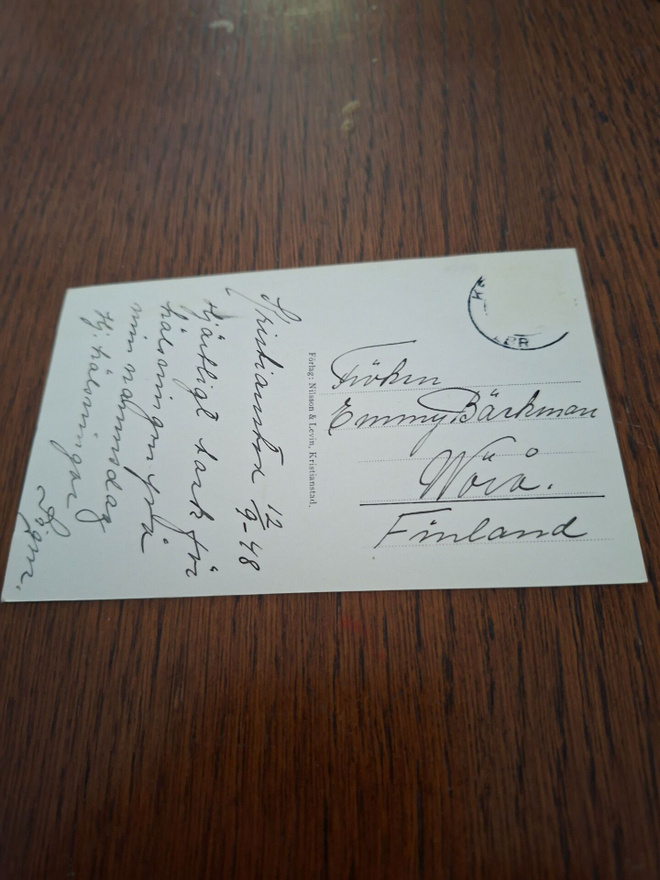 Kristianstad 12/9-48
Hjärtligt tack för
hälsningen på
min namnsdag
Hj. hälsningar
Förlag: Nilsson & Levin, Kristianstad.
Fröken
Emmy Bärkman
Wörå.
Finland